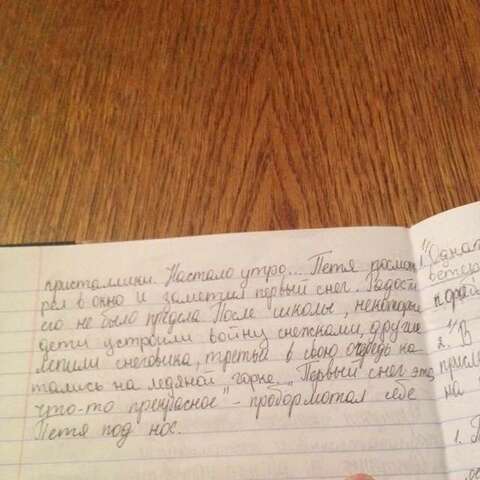 кристаллики. Настало утро... Петя посмот
рел в окно и заметил первый снег. Радости
его не было предела. После школы, некоторые
дети устроили войну снежками, другие
лепили снеговика, третьи в свою очередь ка
тались на ледяной горке. „Первый снег это
что-то прекрасное" - пробормотал себе
Петя под нос.
1) Однат
ветст
2. 1) В
присл
на
1.